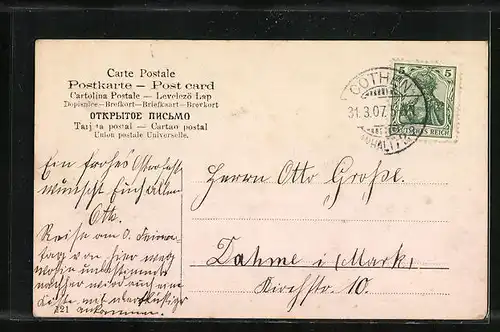 Carte Postale
Postkarte — Post card
Cartolina Postale — Levelező Lap
Dopisnice—Brefkort—Briefkaart—Brevkort
ОТКРЫТОЕ ПИСЬМО
Tarjeta postal — Cartao postal
Union postale Universelle.
5 5
CÖTHEN
31.3.07.
(ANHALT)
DEUTSCHES REICH
Ein frohes Osterfest
wünscht Euch allen
Otto.
Reise am
tag von hier weg
nachher wird eine
Kiste mit
ankommen.
Herrn Otto Große.
Dahme i/Mark
Kirchstr. 10.
221